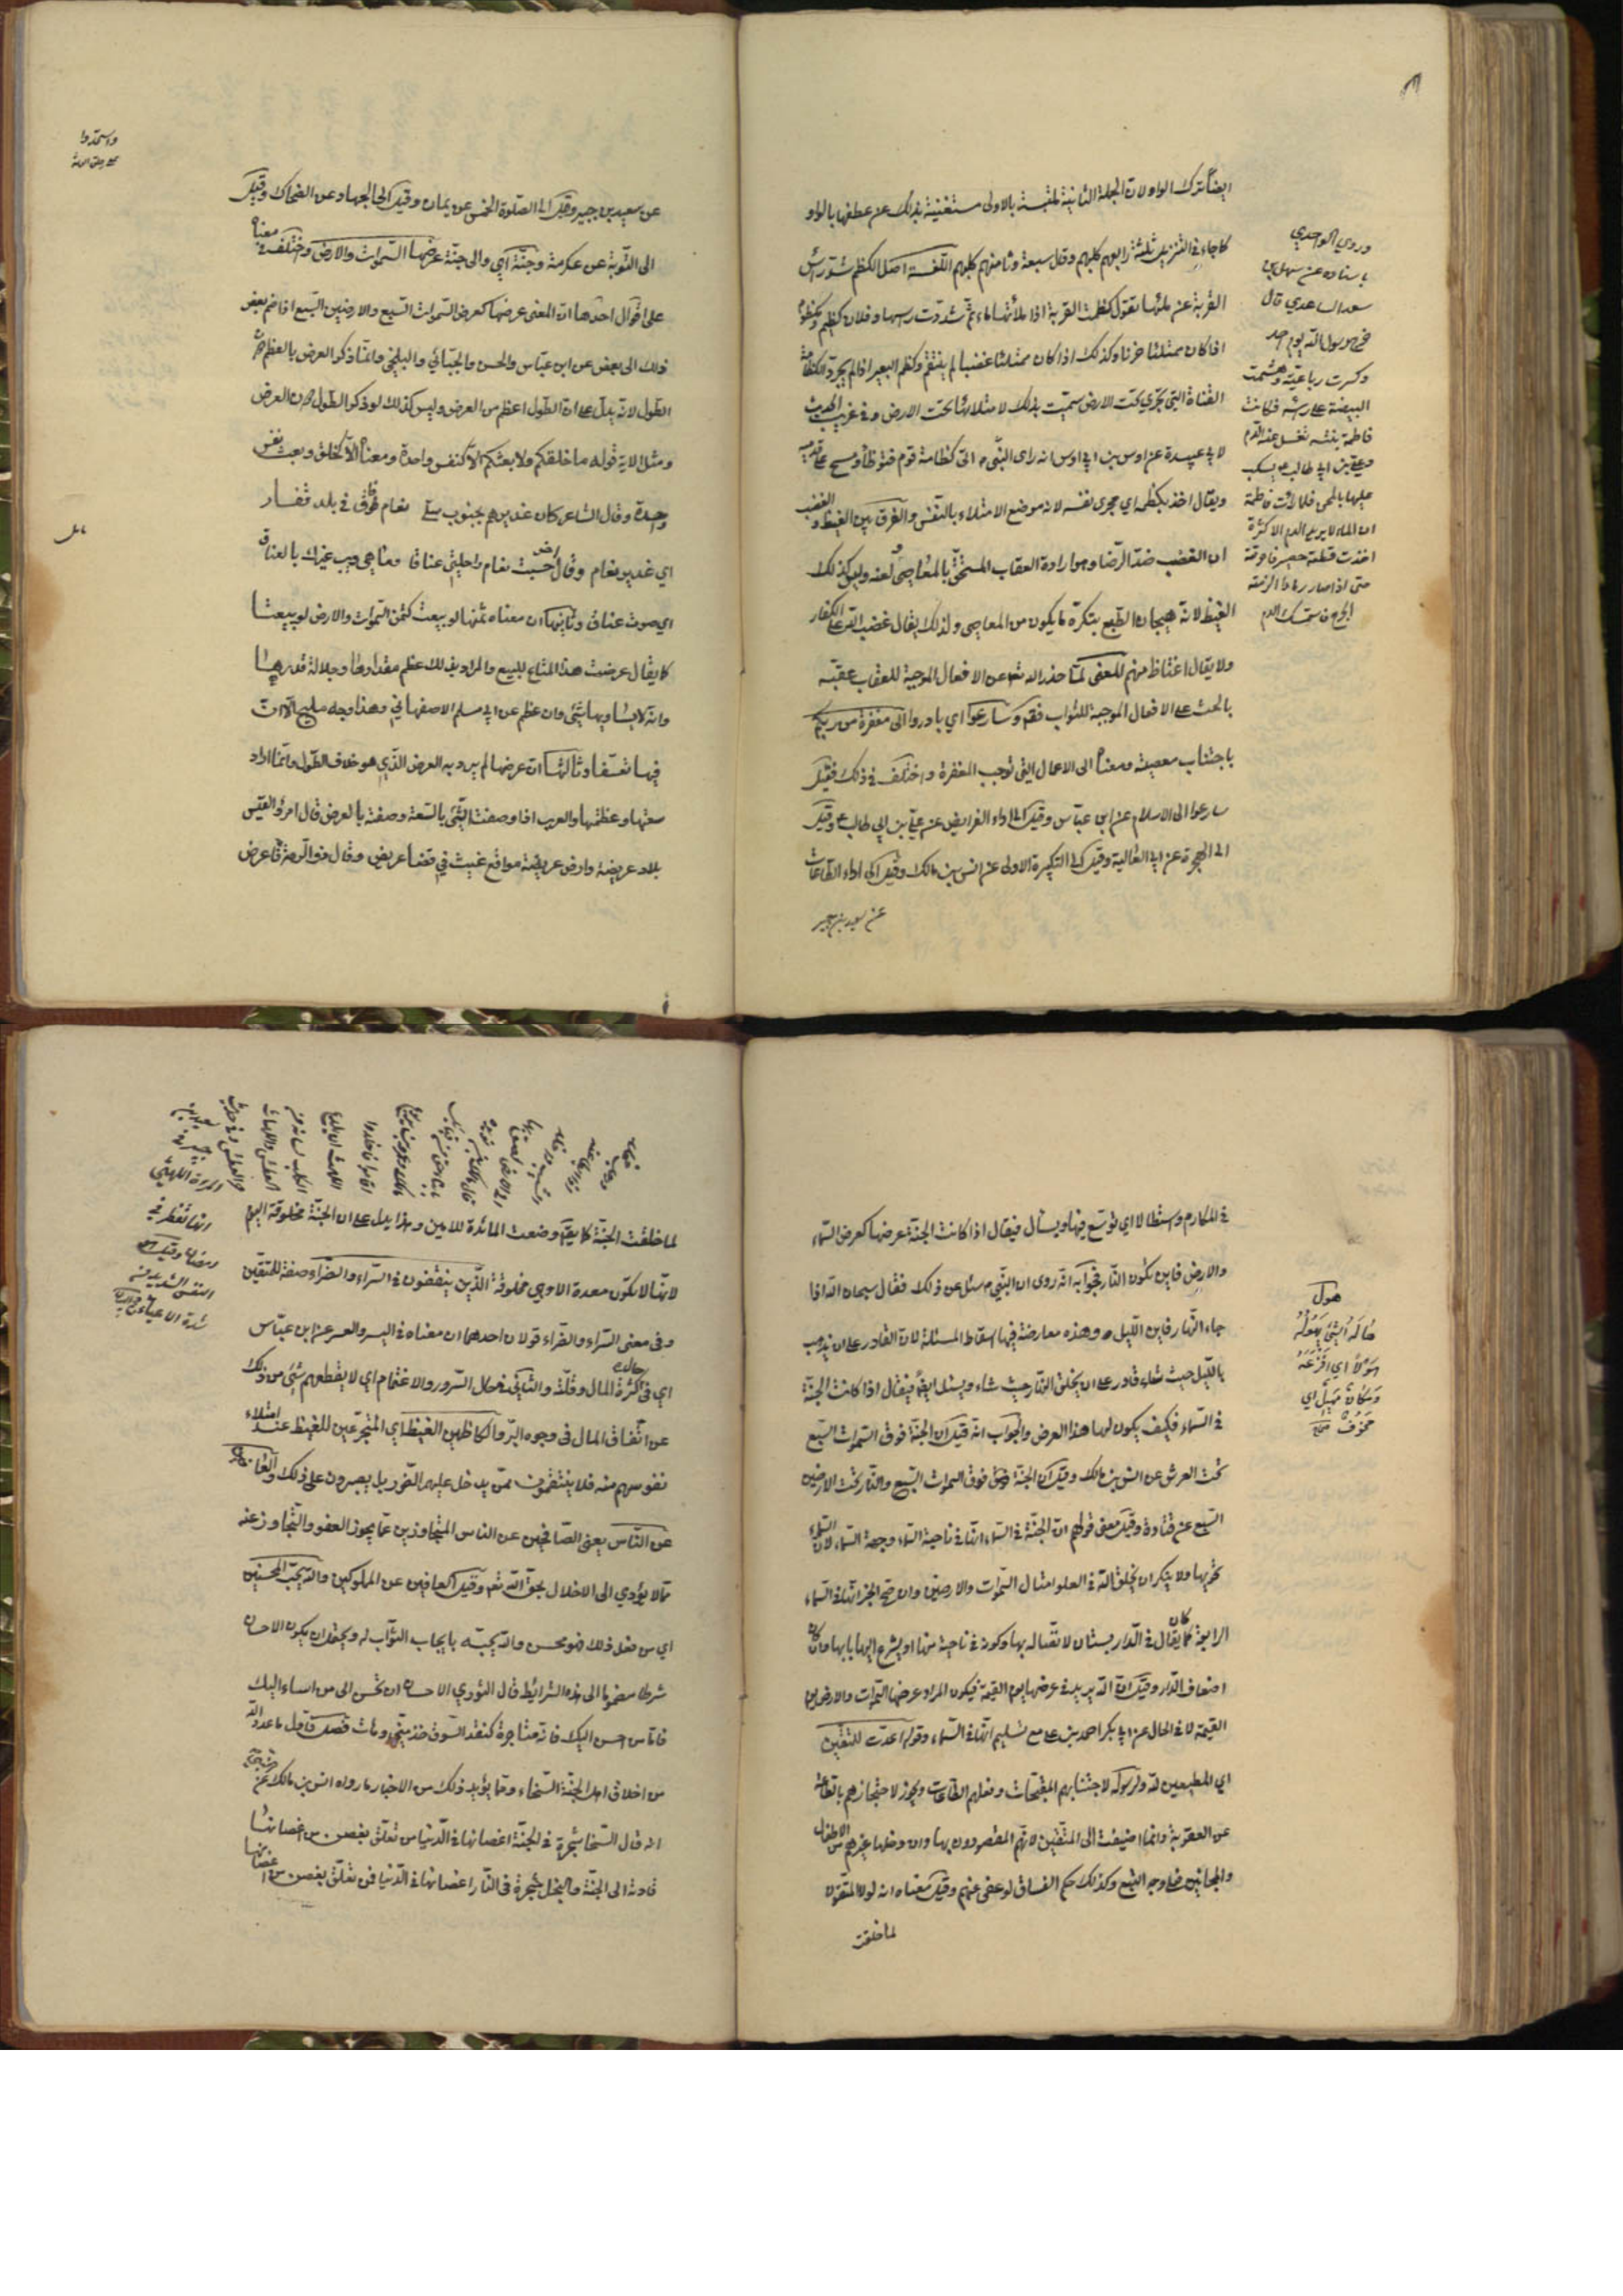 ايضا بترك الواو لان الجملة الثانية ملتبسة بالاولى مستغنية بذلك عن عطفها بالواو
كما جاء في التنزيل ثلثة رابعهم كلبهم وقال سبعة وثامنهم كلبهم اللغـة اصل الكظم شد رأس
القربة عن ملئها تقول كظمت القربة اذا ملأتها ماء ثم شددت رسها وفلان كظيم ومكظوم
اذا كان ممتلئا حزنا وكذلك اذا كان ممتلئا غضبا لم ينتقم وكظم البعير اذا لم يجتر والكظامة
القناة التي تجري تحت الارض سميت بذلك لامتلائها تحت الارض وفي غريب الحديث
لابي عبيدة عن اوس بن ابي اوس انه راى النبي ص اتى كظامة قوم فتوضأ ومسح على قدميه
ويقال اخذ بكظمه اي مجرى نفسه لانه موضع الامتلاء بالنفس والفرق بين الغيظ والغضب
ان الغضب ضد الرضا وهو ارادة العقاب المستحق بالمعاصي ولعنه وليس كذلك
الغيظ لانه هيجان الطبع بتكره ما يكون من المعاصي ولذلك يقال غضب الله على الكفار
ولا يقال اغتاظ منهم المعنى لما حذر الله تعه عن الافعال الموجبة للعقاب عقبه
بالحث على الافعال الموجبة للثواب فقم وسارعوا اي بادروا الى مغفرة من ربكم
باجتناب معصيته ومعناه الى الاعمال التي توجب المغفرة واختلف في ذلك فقيل
سارعوا الى الاسلام عن ابن عباس وقيل الى اداء الفرايض عن علي بن ابي طالب ع وقيل
الى الهجرة عن ابي العالية وقيل الى التكبيرة الاولى عن انس بن مالك وقيل الى اداء الطاعات
عن سعيد بن جبير
وروي الواحدي
باسناده عن سهل بن
سعد الساعدي قال
جرح رسول الله يوم احد
وكسرت رباعيته وهشمت
البيضة على راسه فكانت
فاطمة بنته تغسل عنه الدم
وعلي بن ابي طالب ع يسكب
عليها بالمجن فلما رات فاطمة
ان الماء لا يزيد الدم الا كثرة
اخذت قطعة حصير فاحرقته
حتى اذا صار رمادا الزمته
الجرح فاستمسك الدم
عن سعيد بن جبير وقيل الى الصلوة الخمس عن يمان وقيل الى الجهاد عن الضحاك وقيل
الى التوبة عن عكرمة وجنة اي والى جنة عرضها السموات والارض واختلف في معناه
على اقوال احدها ان المعنى عرضها كعرض السموات السبع والارضين السبع اذا ضم بعض
ذلك الى بعض عن ابن عباس والحسن والجبائي والبلخي وانما ذكر العرض بالعظم دون
الطول لانه يدل على ان الطول اعظم من العرض وليس كذلك لو ذكر الطول دون العرض
ومثل الاية قوله ما خلقكم ولا بعثكم الا كنفس واحدة ومعناه الا كخلق وبعث نفس
وحدة وقال الشاعر كان غديرهم بجنوب سلى نعام قاق في بلد قفـار
اي غدير نعام وقال اخر حسبت بغام راحلتي عناقا وما هي ويب غيرك بالعناق
اي صوت عناق وثانيها ان معناه ثمنها لو بيعت كثمن السموات والارض لو بيعتـا
كما يقال عرضت هذا المتاع للبيع والمراد بذلك عظم مقدارها وجلالة قدرهـا
وانه لا يساويها شئ وان عظم عن ابي مسلم الاصفهاني وهذا وجه مليح الا ان
فيها تعسفا وثالثها ان عرضها لم يرد به العرض الذي هو خلاف الطول وانما اراد
سعتها وعظمها والعرب اذا وصفت الشئ بالسعة وصفته بالعرض قال امرؤ القيس
بلاد عريضة وارض عريضة مواقع غيث في فضاء عريض وقال ذو الرمة فاعرض
في المكارم واستطالا اي توسع فيها ويسأل فيقال اذا كانت الجنة عرضها كعرض السماء
والارض فاين تكون النار فجوابه انه روى ان النبي ص سئل عن ذلك فقال سبحان الله اذا
جاء النهار فاين الليل ه وهذه معارضة فيها اسقاط المسئلة لان القادر على ان يذهب
بالليل حيث شاء قادر على ان يخلق النار حيث شاء ويسئل ايضا فيقال اذا كانت الجنة
في السماء فكيف يكون لها هذا العرض والجواب انه قيل ان الجنة فوق السموات السبع
تحت العرش عن انس بن مالك وقيل ان الجنة فوق السموات السبع والنار تحت الارضين
السبع عن قتادة وقيل معنى قولهم ان الجنة في السماء انها في ناحية السماء وجهة السماء لان السماء
تحويها ولا ينكر ان يخلق الله في العلو امثال السموات والارضين وان صح الخبر انها في السماء
الرابعة كان كما يقال في الدار بستان لاتصاله بها وكونه في ناحية منها او يشرع اليها بابها وان كان
اضعاف الدار وقيل ان الله يريد في عرضها يوم القيمة فيكون المراد عرضها السموات والارض يوم
القيمة لا في الحال عن ابي بكر احمد بن علي مع تسليم انها في السماء وقوله اعدت للمتقين
اي المطيعين لله ولرسوله لاجتنابهم المقبحات وفعلهم الطاعات ويجوز لاحتجازهم بالطاعة
عن العقوبة وانما اضيفت الى المتقين لانهم المقصودون بها وان دخلها غيرهم من الاطفال
والمجانين فعلى وجه التبع وكذلك حكم الفساق لو عفى عنهم وقيل معناه انه لولا المتقون لا
لما خلقت
هول
هَالَهُ الشئ يَهُولُهُ
هَوْلاً اي افْزَعَهُ
وَمَكان مَهِيل اي
مَخوُف صحاح
لما خلقت الجنة كما يقم وضعت المائدة للامير وهذا يدل على ان الجنة مخلوقة اليوم
لانها لا تكون معدة الا وهي مخلوقة الذين ينفقون في السراء والضراء صفة للمتقين
وفي معنى السراء والضراء قولان احدهما ان معناه في اليسر والعسر عن ابن عباس
اي في حالي كثرة المال وقلته والثاني في حال السرور والاغتمام اي لا يقطعهم شئ من ذلك
عن انفاق المال في وجوه البر والكاظمين الغيظ اي المتجرعين للغيظ عند امتلاء
نفوسهم منه فلا ينتقمون ممن يدخل عليهم الضرر بل يصبرون على ذلك والعافين
عن الناس يعني الصافحين عن الناس المتجاوزين عما يجوز العفو والتجاوز عنه
مما لا يؤدي الى الاخلال بحق الله تعه وقيل العافين عن المملوكين والله يحب المحسنين
اي من فعل ذلك فهو محسن والله يحبه بايجاب الثواب له ويحتمل ان يكون الاحسان
شرطا مضموما الى هذه الشرائط قال الثوري الاحسان ان تحسن الى من اساء اليك
فاما من احسن اليك فانه متاجرة كنقد السوق خذ مني وهات فصـل فاول ما عدد الله
من اخلاق اهل الجنة السخاء ومما يؤيد ذلك من الاخبار ما رواه انس بن مالك عن
انه قال السخا شجرة في الجنة اغصانها في الدنيا من تعلق بغصن من اغصانهـا
قادته الى الجنة والبخل شجرة في النار اغصانها في الدنيا فمن تعلق بغصن من اغصانها